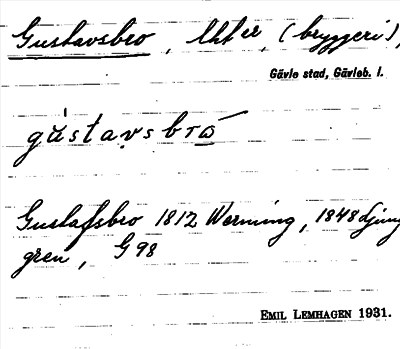 Gustavsbro, lht er, (bryggeri),
Gävle stad, Gävleb. l.
gustavsbrω
Gustafsbro 1812 Werming, 1848 Ljung
gren, G 98
EMIL LEMHAGEN 1931.